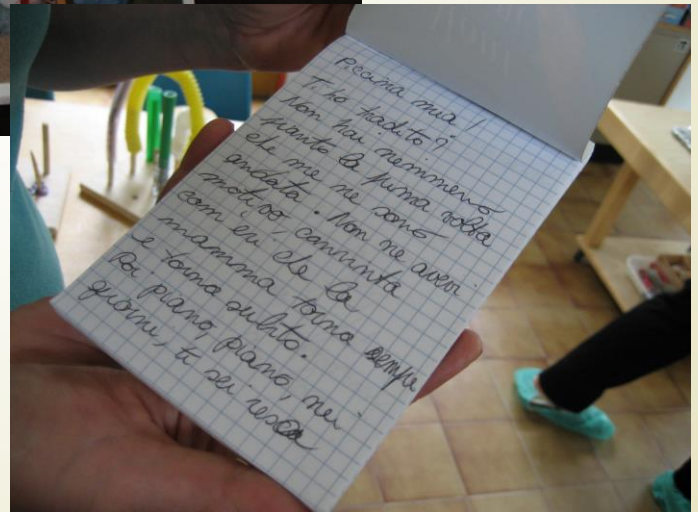 Piccina mia!
Ti ho tradito?
Non hai nemmeno
pianto la prima volta
che me ne sono
andata. Non ne avevi
motivo, convinta
com'eri che la
mamma torna sempre
e torna subito.
Poi piano, piano, nei
giorni, ti sei resa